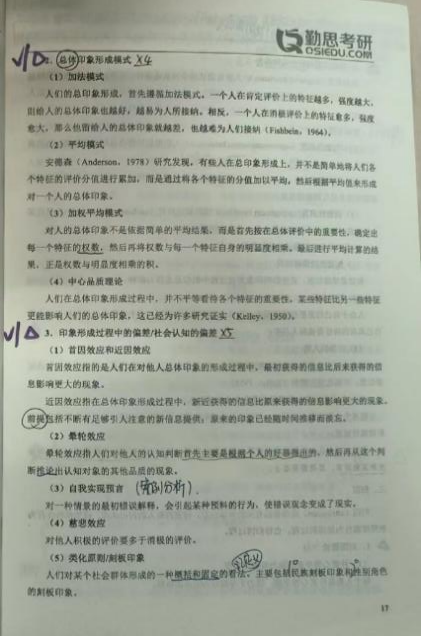 勤思考研
QSIEDU.COM
V/D 2. 总体印象形成模式 X4
（1）加法模式
人们的总印象形成，首先遵循加法模式。一个人在肯定评价上的特征越多，强度越大，
但给人的总体印象也越好，越易为人所接纳。相反，一个人在消极评价上的特征愈多，强度
愈大，那么他留给人的总体印象就越差，也越难为人们接纳（Fishbein，1964）。
（2）平均模式
安德森（Anderson，1978）研究发现，有些人在总印象形成上，并不是简单地将人们各
个特征的评价分值进行累加，而是通过将各个特征的分值加以平均，然后根据平均值来形成
对一个人的总体印象。
（3）加权平均模式
对人的总体印象不是依据简单的平均结果，而是首先按在总体评价中的重要性，确定出
每一个特征的权数，然后再将权数与每一个特征自身的明显度相乘，最后进行平均计算的结
果，正是权数与明显度相乘的积。
（4）中心品质理论
人们在总体印象形成过程中，并不平等看待各个特征的重要性，某些特征比另一些特征
更能影响人们的总体印象，这已经为许多研究证实（Kelley，1950）。
V/Δ 3、印象形成过程中的偏差/社会认知的偏差 X5
（1）首因效应和近因效应
首因效应指的是人们在对他人总体印象的形成过程中，最初获得的信息比后来获得的信
息影响更大的现象。
近因效应指在总体印象形成过程中，新近获得的信息比原来获得的信息影响更大的现象。
前提包括不断有足够引人注意的新信息提供；原来的印象已经随时间推移而淡忘。
（2）晕轮效应
晕轮效应指人们对他人的认知判断首先主要是根据个人的好恶得出的，然后再从这个判
断推论出认知对象的其他品质的现象。
（3）自我实现预言（案例分析）.
对一种情景的最初错误解释，会引起某种预料的行为，使错误观念变成了现实。
（4）慈悲效应
对他人积极的评价要多于消极的评价。
（5）类化原则/刻板印象
人们对某个社会群体形成的一种概括和固定的看法。主要包括民族刻板印象和性别角色
的刻板印象。
17